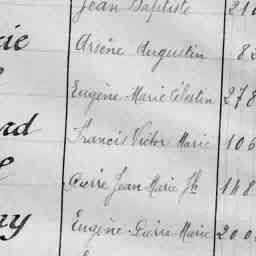 Jean Baptiste 21
rie Arsène Augustin 82
Eugène-Marie Célestin 278
rd Francis Victor Marie 106
Pierre Jean Marie Jh 148
ay Eugène-Pierre-Marie 200